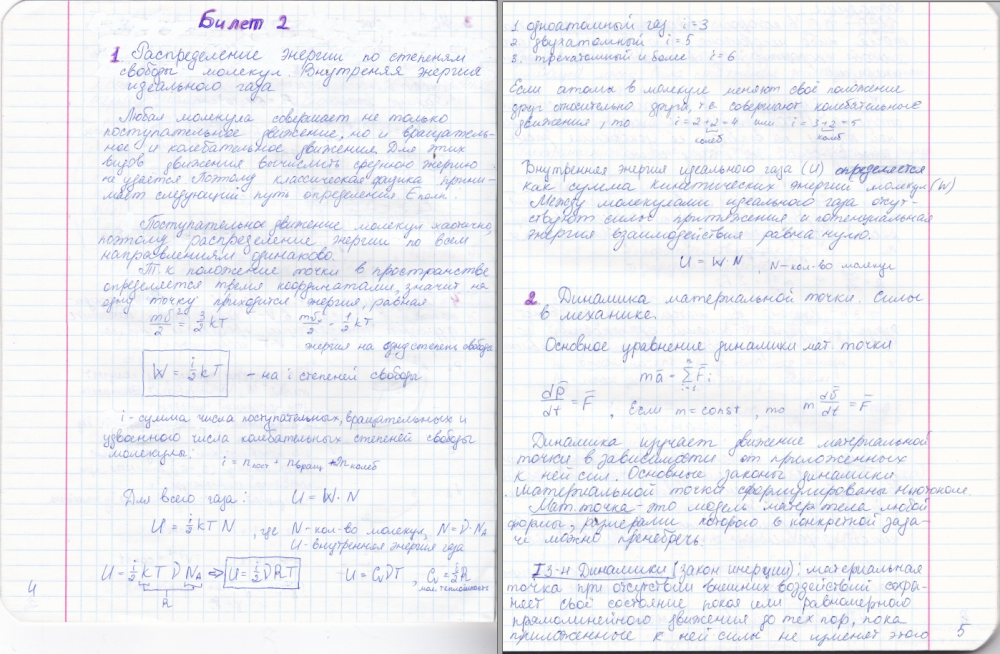 Билет 2
1 Распределение энергии по степеням
свободы молекул. Внутреняя энергия
идеального газа
Любая молекула совершает не только
поступательное движение, но и вращатель-
ное и колебательное движения. Для этих
видов движения вычислить среднюю энергию
не удается. Поэтому классическая физика прини-
мает следующий путь определения Eполн.
Поступательное движение молекул хаотично,
поэтому распределение энергии по всем
направлениям одинаково.
Т.к положение точки в пространстве
определяется тремя координатами, значит на
одну точку приходится энергия, равная
mv̄²/2 = 3/2 kT   mv̄ₓ/2 = 1/2 kT
энергия на одну степень свободы
W = i/2 kT – на i степеней свободы
i - сумма числа поступательных, вращательных и
удвоенного числа колбательных степеней свободы
молекулы:
i = nпост + nвращ + 2nколеб
Для всего газа: U = W · N
U = i/2 kT N , где N - кол-во молекул, N = ν · NA
U - внутренняя энергия газа
U = i/2 kT ν NA ⇒ U = i/2 ν RT   U = Cv ν T , Cv = i/2 R
R
мол. теплоемкость
4
1. одноатомный газ i = 3
2. двухатомный i = 5
3. трехатомный и более i = 6
Если атомы в молекуле меняют своё положение
друг относительно друга, т е совершают колебательные
движения, то i = 2 + 2 = 4 или i = 3 + 2 = 5
колеб колб
Внутренняя энергия идеального газа (U) определяется
как сумма кинетических энергий молекул (W)
Между молекулами идеального газа отсут-
ствуют силы притяжения и потенциальная
энергия взаимодействия равна нулю.
U = W · N , N - кол-во молекул
2 Динамика материальной точки. Силы
в механике.
Основное уравнение динамики мат. точки
mā = Σ F̄i
n
i=1
dp̄/dt = F̄ , Если m = const , то m dv̄/dt = F̄
Динамика изучает движение материальной
точки в зависимости от приложенных
к ней сил. Основные законы динамики
материальной точки сформулированы Ньютоном.
Мат. точка - это модель мат тела любой
формы, размерами которого в конкретной зада-
че можно пренебречь.
I з-н Динамики (закон инерции): материальная
точка при отсутствии внешних воздействий сохра-
няет своё состояние покоя или равномерного
прямолинейного движения до тех пор, пока
приложенные к ней силы не изменят этого
5